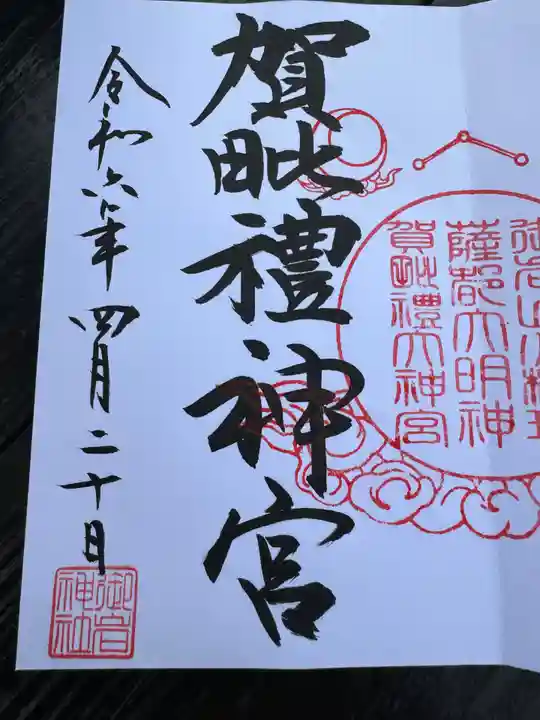 賀毗禮神宮
令和六年四月二十日
薩都大明神
賀毗禮大神宮
御岩神社